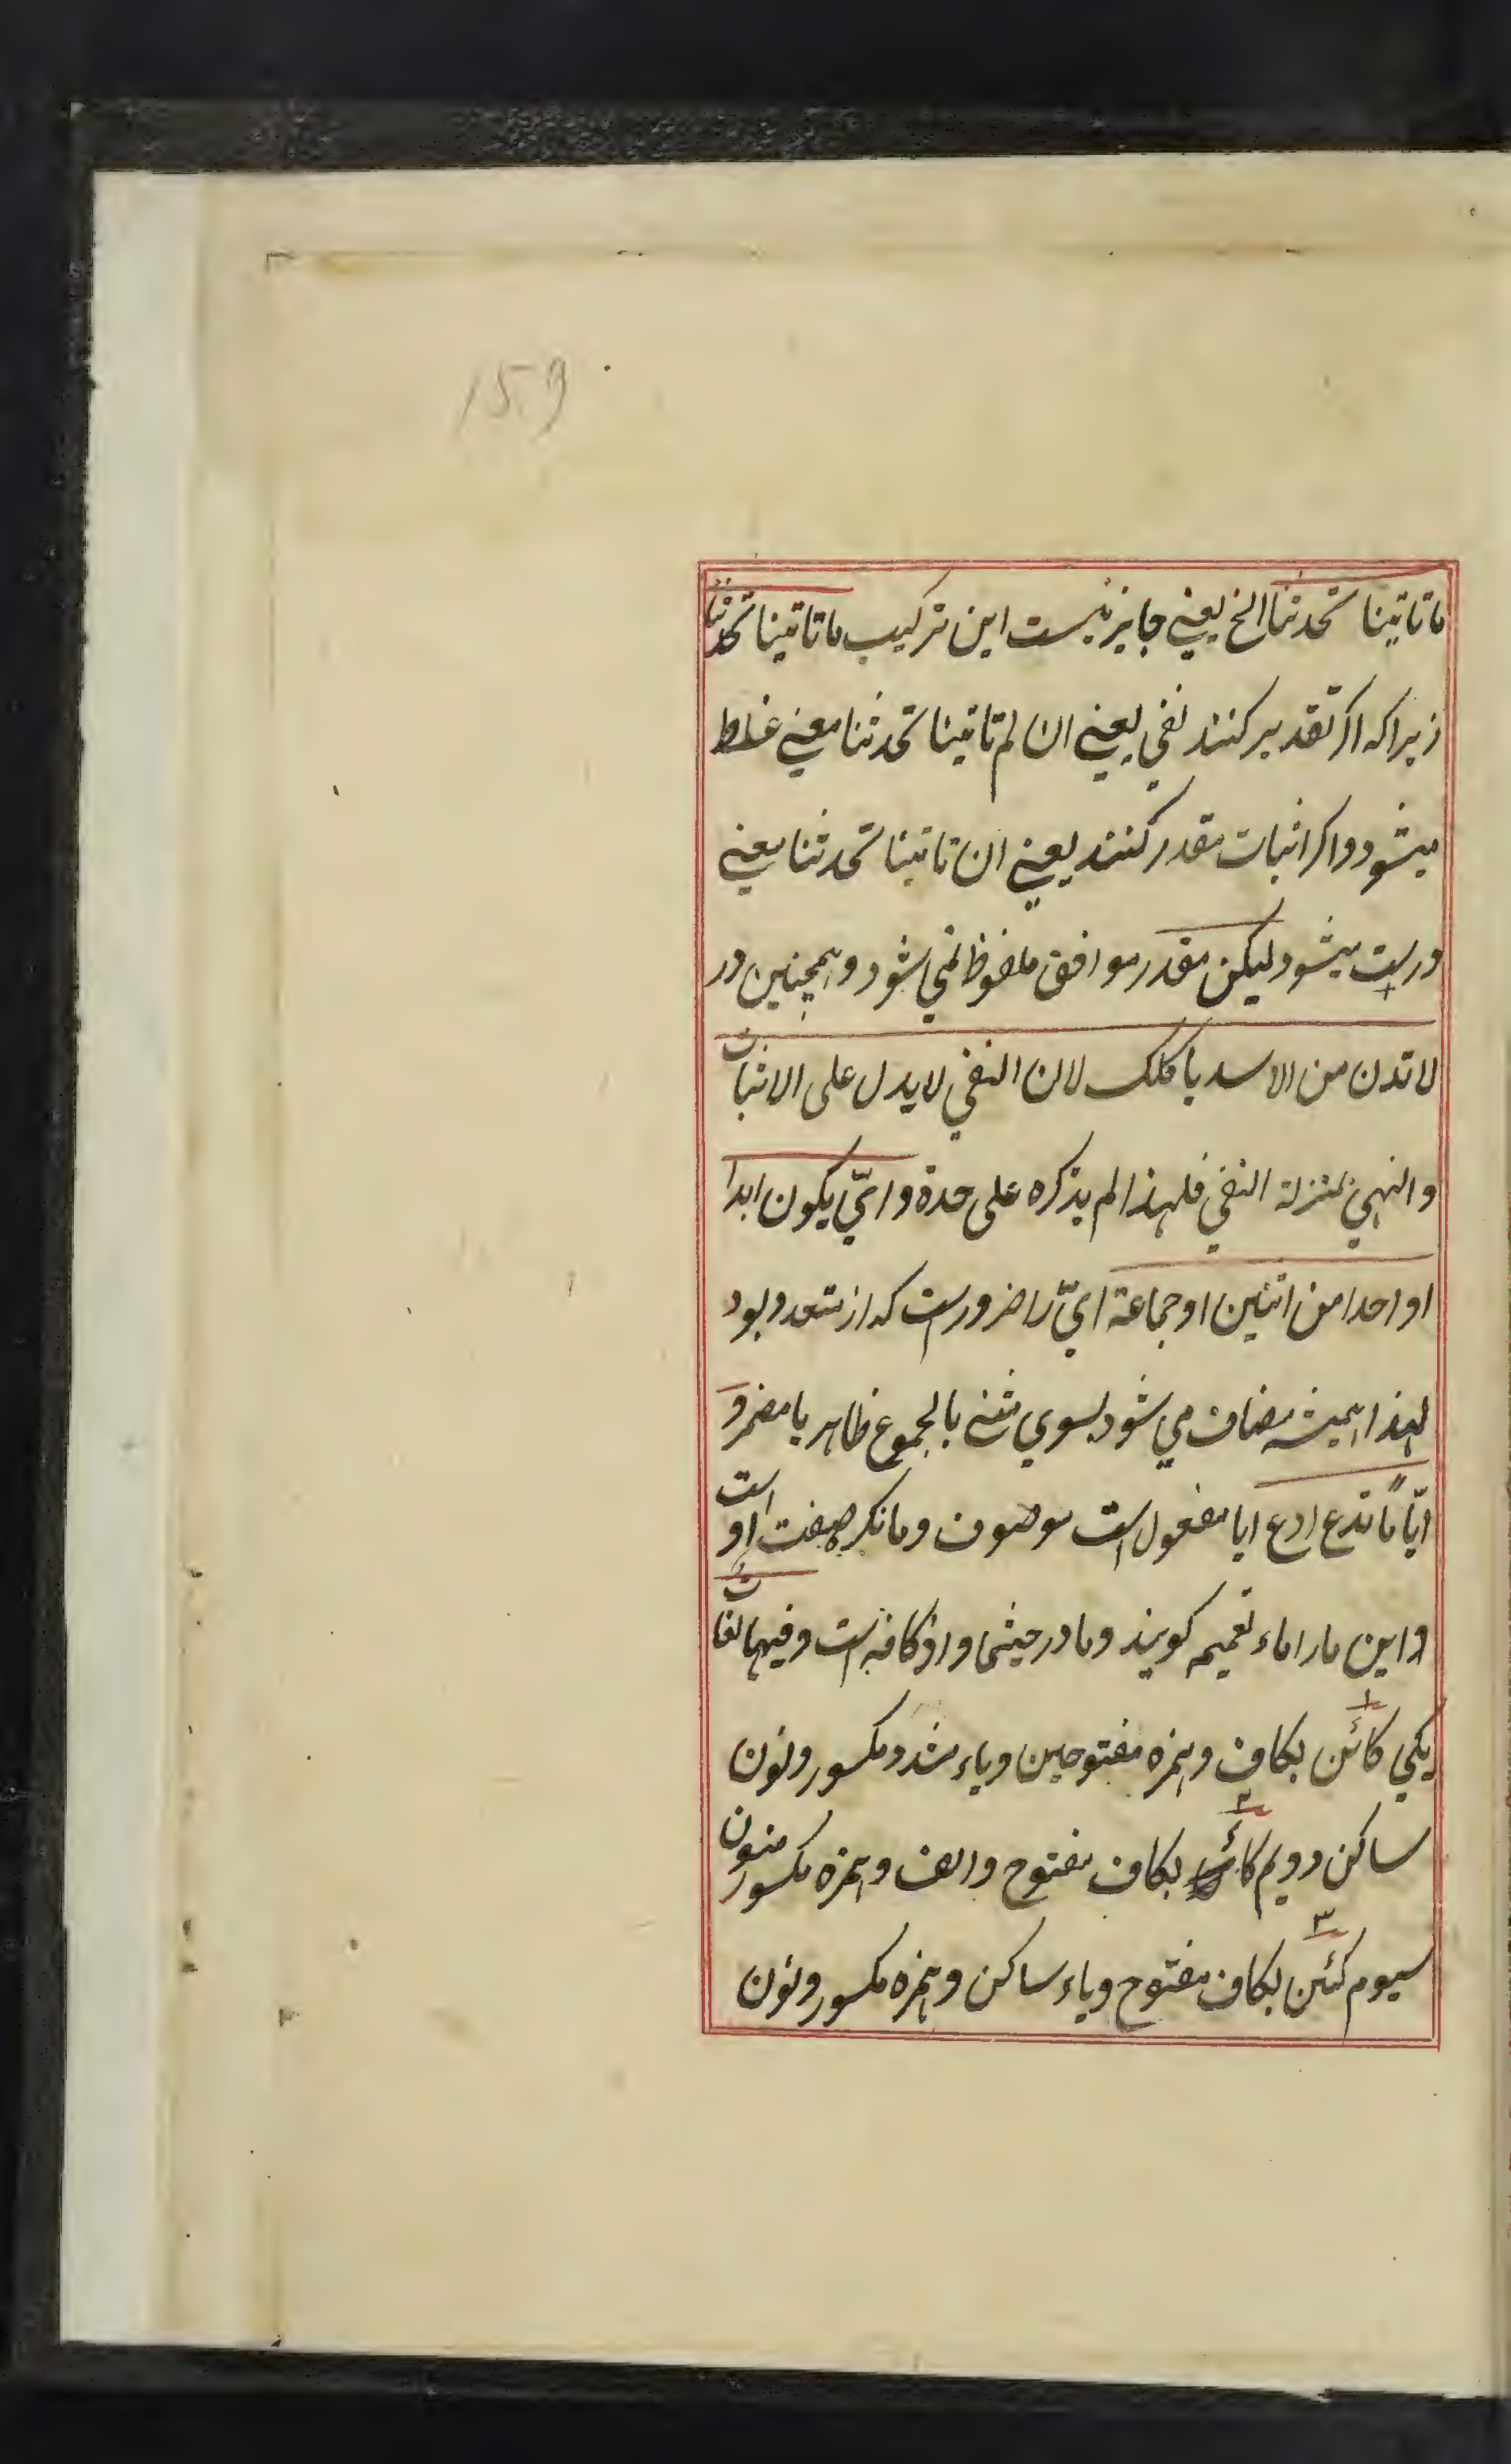 159
ماتاتینا تحدثنا الخ یعنی جایز نیست این ترکیب ماتاتینا تحدثنا
زیراکه اکر تقدیر کنند نفی یعنی ان لم تاتینا تحدثنا معنی غلط
میشود و اکر اثبات مقدر کنند یعنی ان تاتینا تحدثنا معنی
درست میشود لیکن مقدر موافق ملفوظ نمی شود و همچنین در
لا تدن من الاسد یاکلک لان النفی لا یدل علی الاثبات
والنهی بمنزلة النفی فلهذا لم یذکره علی حدة و ایّ یکون ابدا
او احدا من اثنین او جماعة ایّ را ضرورست که از متعدد بود
لهذا همیشه مضاف می شود بسوی مثنی یا مجموع ظاهر یا مضمر و
ایّاً ما تدع ادع ایا مفعول است موصوف و ما نکره صفت او است
و این ما را ماء تعمیم کویند و ما در حیثما و اذ کافه است و فیها لغات
یکی کائن ۱ بکاف و همزه مفتوحین و یاء مشدد مکسور و نون
ساکن دویم ۲ بکاف مفتوح و الف و همزه مکسور منون
سیوم کیئن ۳ بکاف مفتوح و یاء ساکن و همزه مکسور و نون